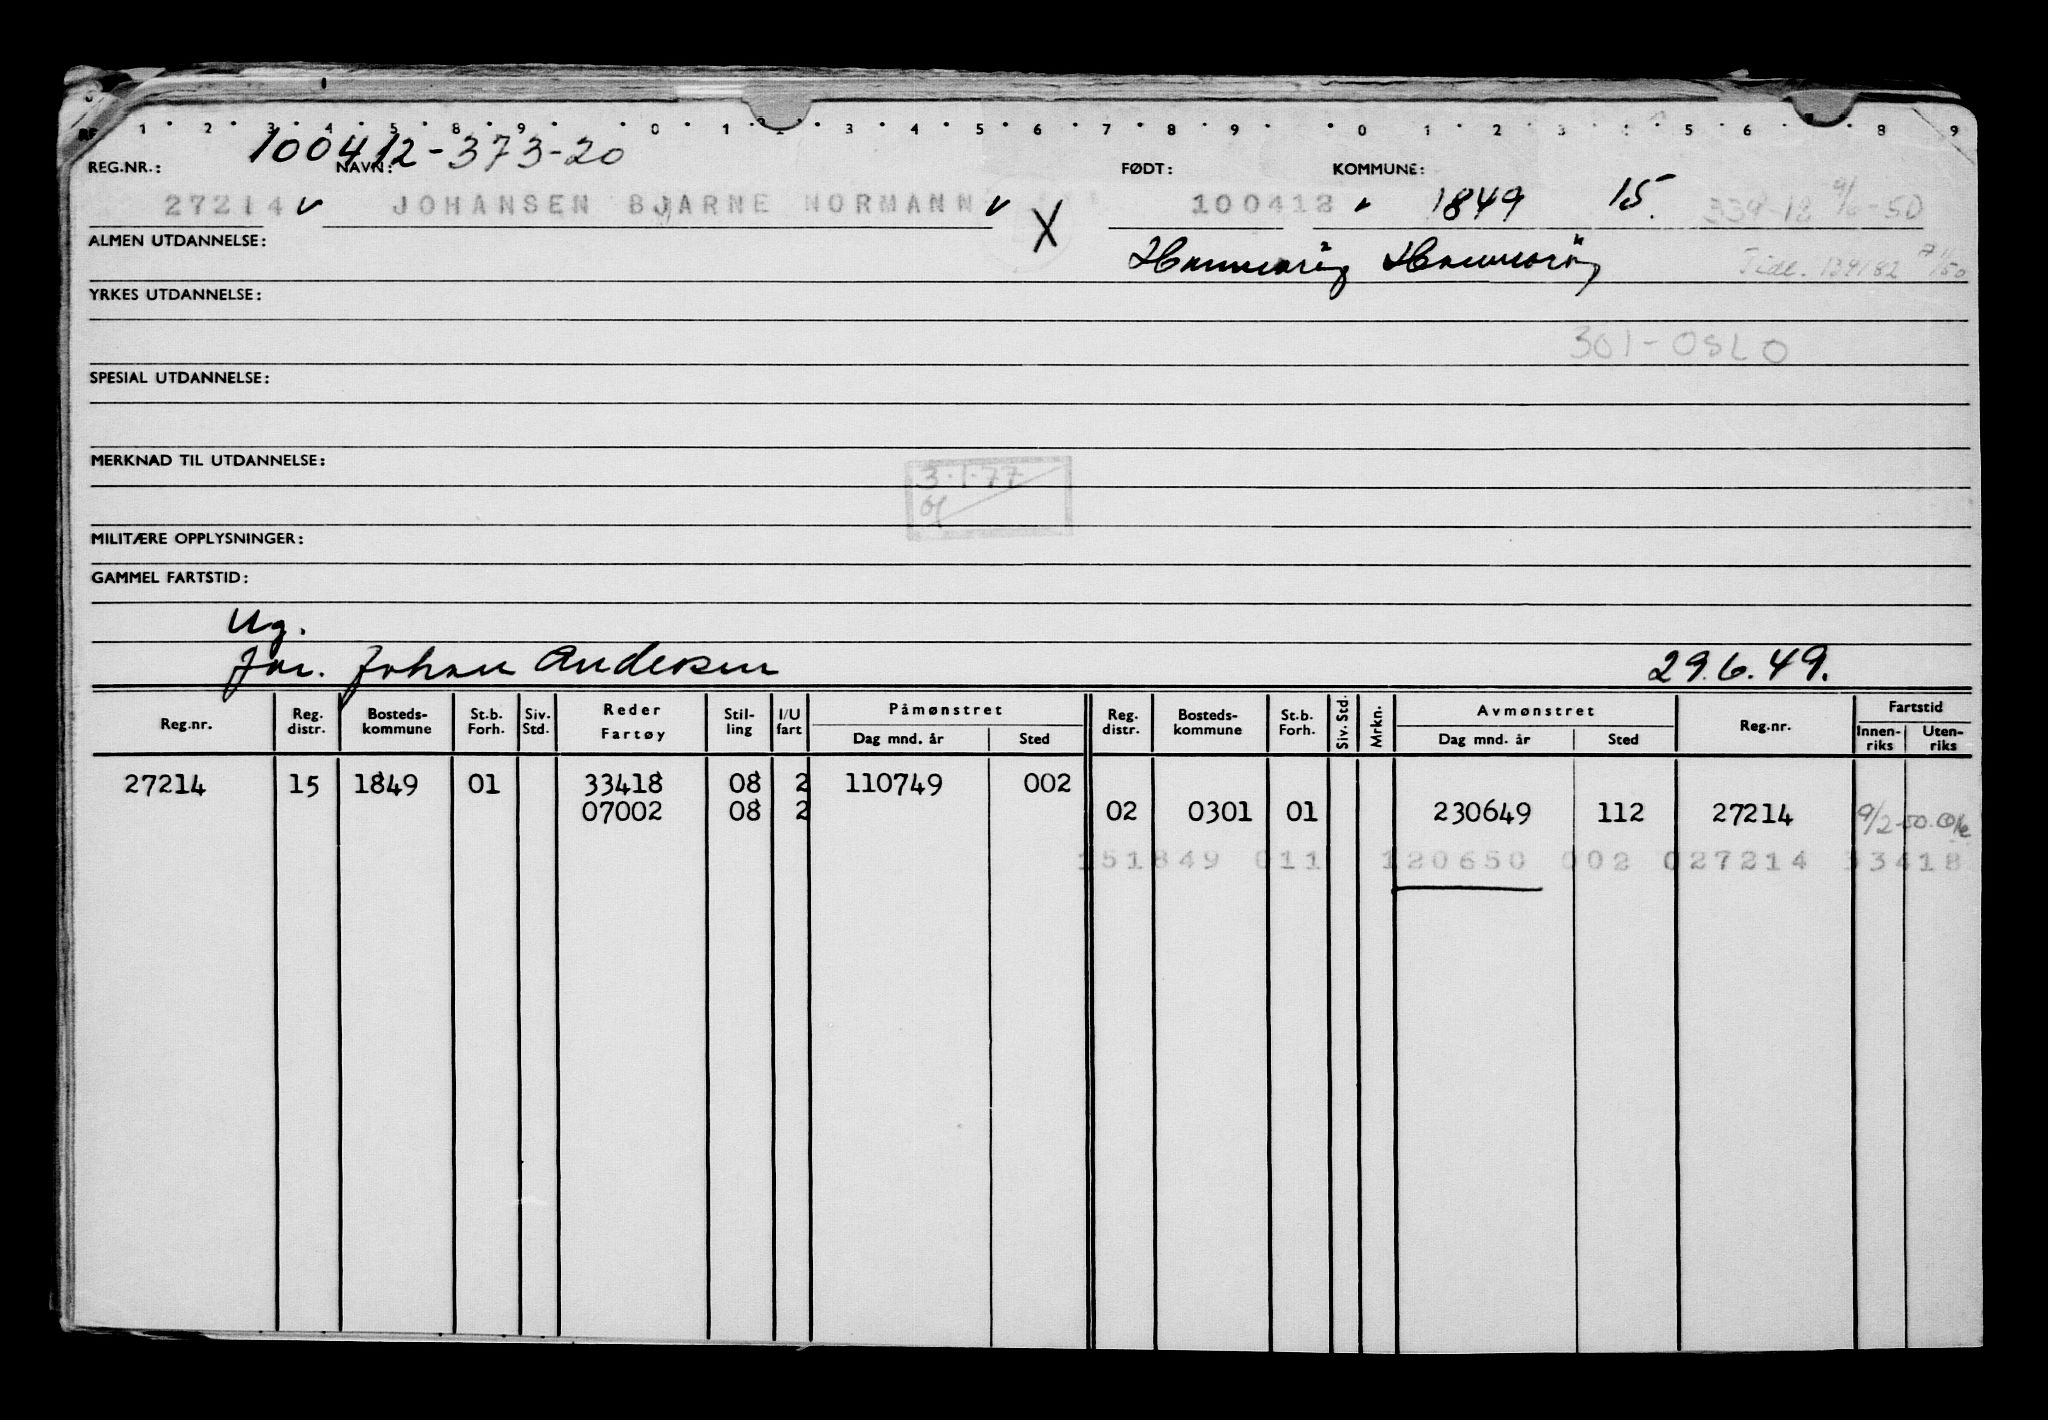 1 2 3 4 5 8 9 0 1 2 3 4 5 6 7 8 9 0 1 2 3 4 5 6 8 9
100412-373-20
REG.NR.: NAVN: FØDT: KOMMUNE:
27214 JOHANSEN BJARNE NORMANN X 100412 1849 15. 334-12 9/6-50
ALMEN UTDANNELSE: Hammarøy Hammarøy Tidl. 139182
YRKES UTDANNELSE:
301-OSLO
SPESIAL UTDANNELSE:
MERKNAD TIL UTDANNELSE:
3.1.77
MILITÆRE OPPLYSNINGER:
GAMMEL FARTSTID:
Ug.
far. Johan Andersen 29.6.49.
Reg.nr. Reg. distr. Bosteds- kommune St.b. Forh. Siv. Std. Reder Fartøy Stil- ling I/U fart Påmønstret Dag mnd. år Sted Reg. distr. Bosteds- kommune St.b. Forh. Siv. Std. Mrkn. Avmønstret Dag mnd. år Sted Reg.nr. Fartstid Innen- riks Uten- riks
27214 15 1849 01 33418 08 2 110749 002
07002 08 2 02 0301 01 230649 112 27214 9/2-50
151849 011 120650 002 027214 33418